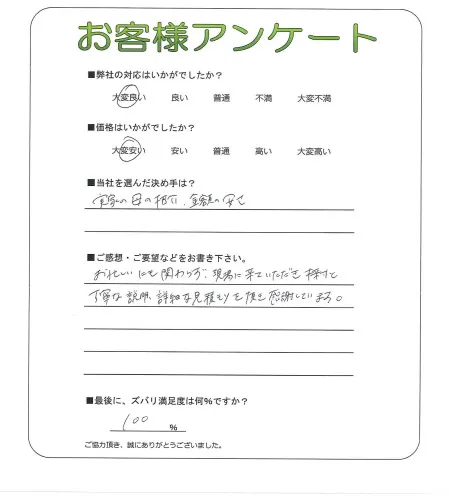 お客様アンケート
■弊社の対応はいかがでしたか？
大変良い 良い 普通 不満 大変不満
■価格はいかがでしたか？
大変安い 安い 普通 高い 大変高い
■当社を選んだ決め手は？
実家の母の紹介、金額の安さ
■ご感想・ご要望などをお書き下さい。
お忙しいにも関わらず、現場に来ていただき
丁寧な説明、詳細な見積もりを頂き感謝しています。
■最後に、ズバリ満足度は何%ですか？
100 %
ご協力頂き、誠にありがとうございました。